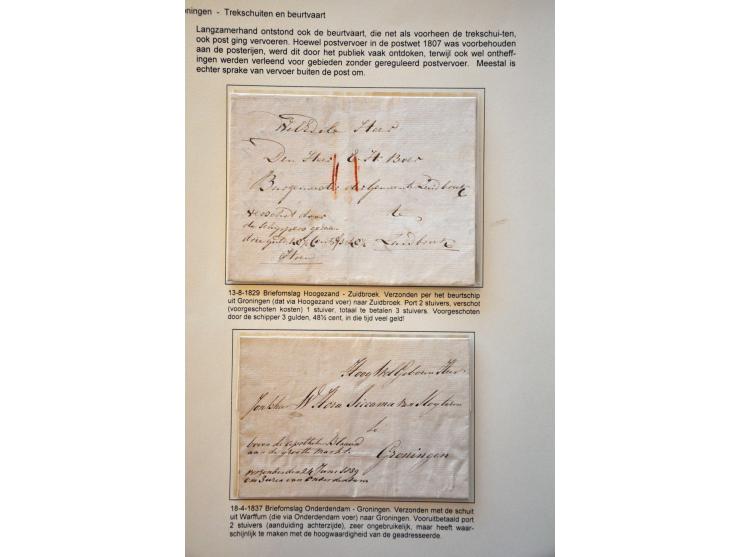 oningen - Trekschuiten en beurtvaart
Langzamerhand ontstond ook de beurtvaart, die net als voorheen de trekschui-ten,
ook post ging vervoeren. Hoewel postvervoer in de postwet 1807 was voorbehouden
aan de posterijen, werd dit door het publiek vaak ontdoken, terwijl ook wel ontheff-
ingen werden verleend voor gebieden zonder gereguleerd postvervoer. Meestal is
echter sprake van vervoer buiten de post om.
WelEdele Heer
Den Heer Boer
Burgemeester der Gemeente Zuidbroek
te
verschot door
Zuidbroek
13-8-1829 Briefomslag Hoogezand - Zuidbroek. Verzonden per het beurtschip
uit Groningen (dat via Hoogezand voer) naar Zuidbroek. Port 2 stuivers, verschot
(voorgeschoten kosten) 1 stuiver, totaal te betalen 3 stuivers. Voorgeschoten
door de schipper 3 gulden, 48½ cent, in die tijd veel geld!
Hoog Wel Geboren Heer
Jonkheer W. Hora Siccama van
te
boven de apotheker
aan de groote markt
Groningen
18-4-1837 Briefomslag Onderdendam - Groningen. Verzonden met de schuit
uit Warffum (die via Onderdendam voer) naar Groningen. Vooruitbetaald port
2 stuivers (aanduiding achterzijde), zeer ongebruikelijk, maar heeft waar-
schijnlijk te maken met de hoogwaardigheid van de geadresseerde.